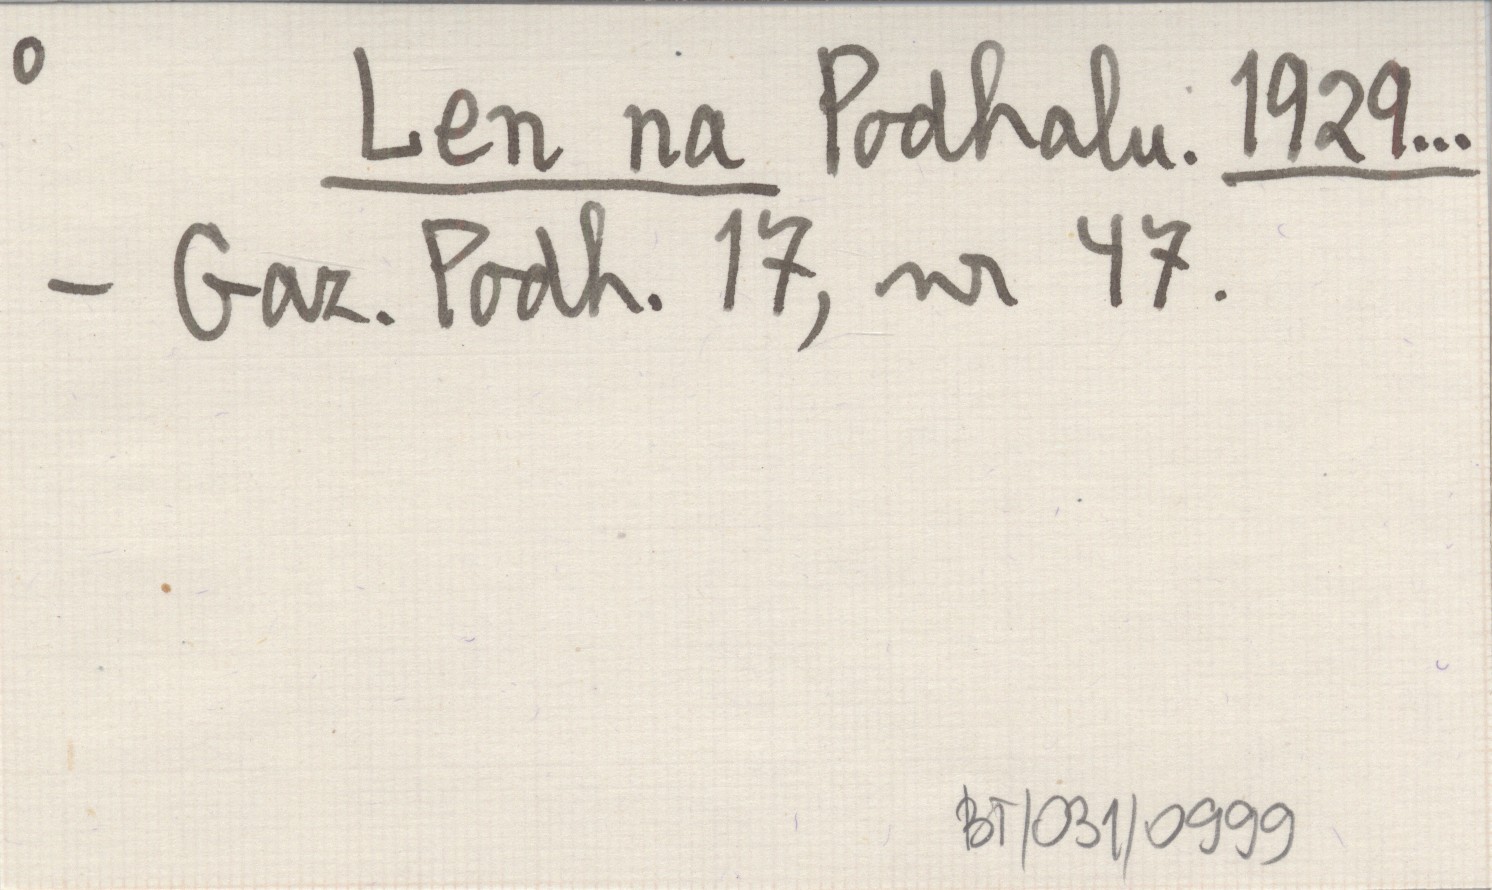 o
Len na Podhalu. 1929...
- Gaz. Podh. 17, nr 47.
BT/031/0999